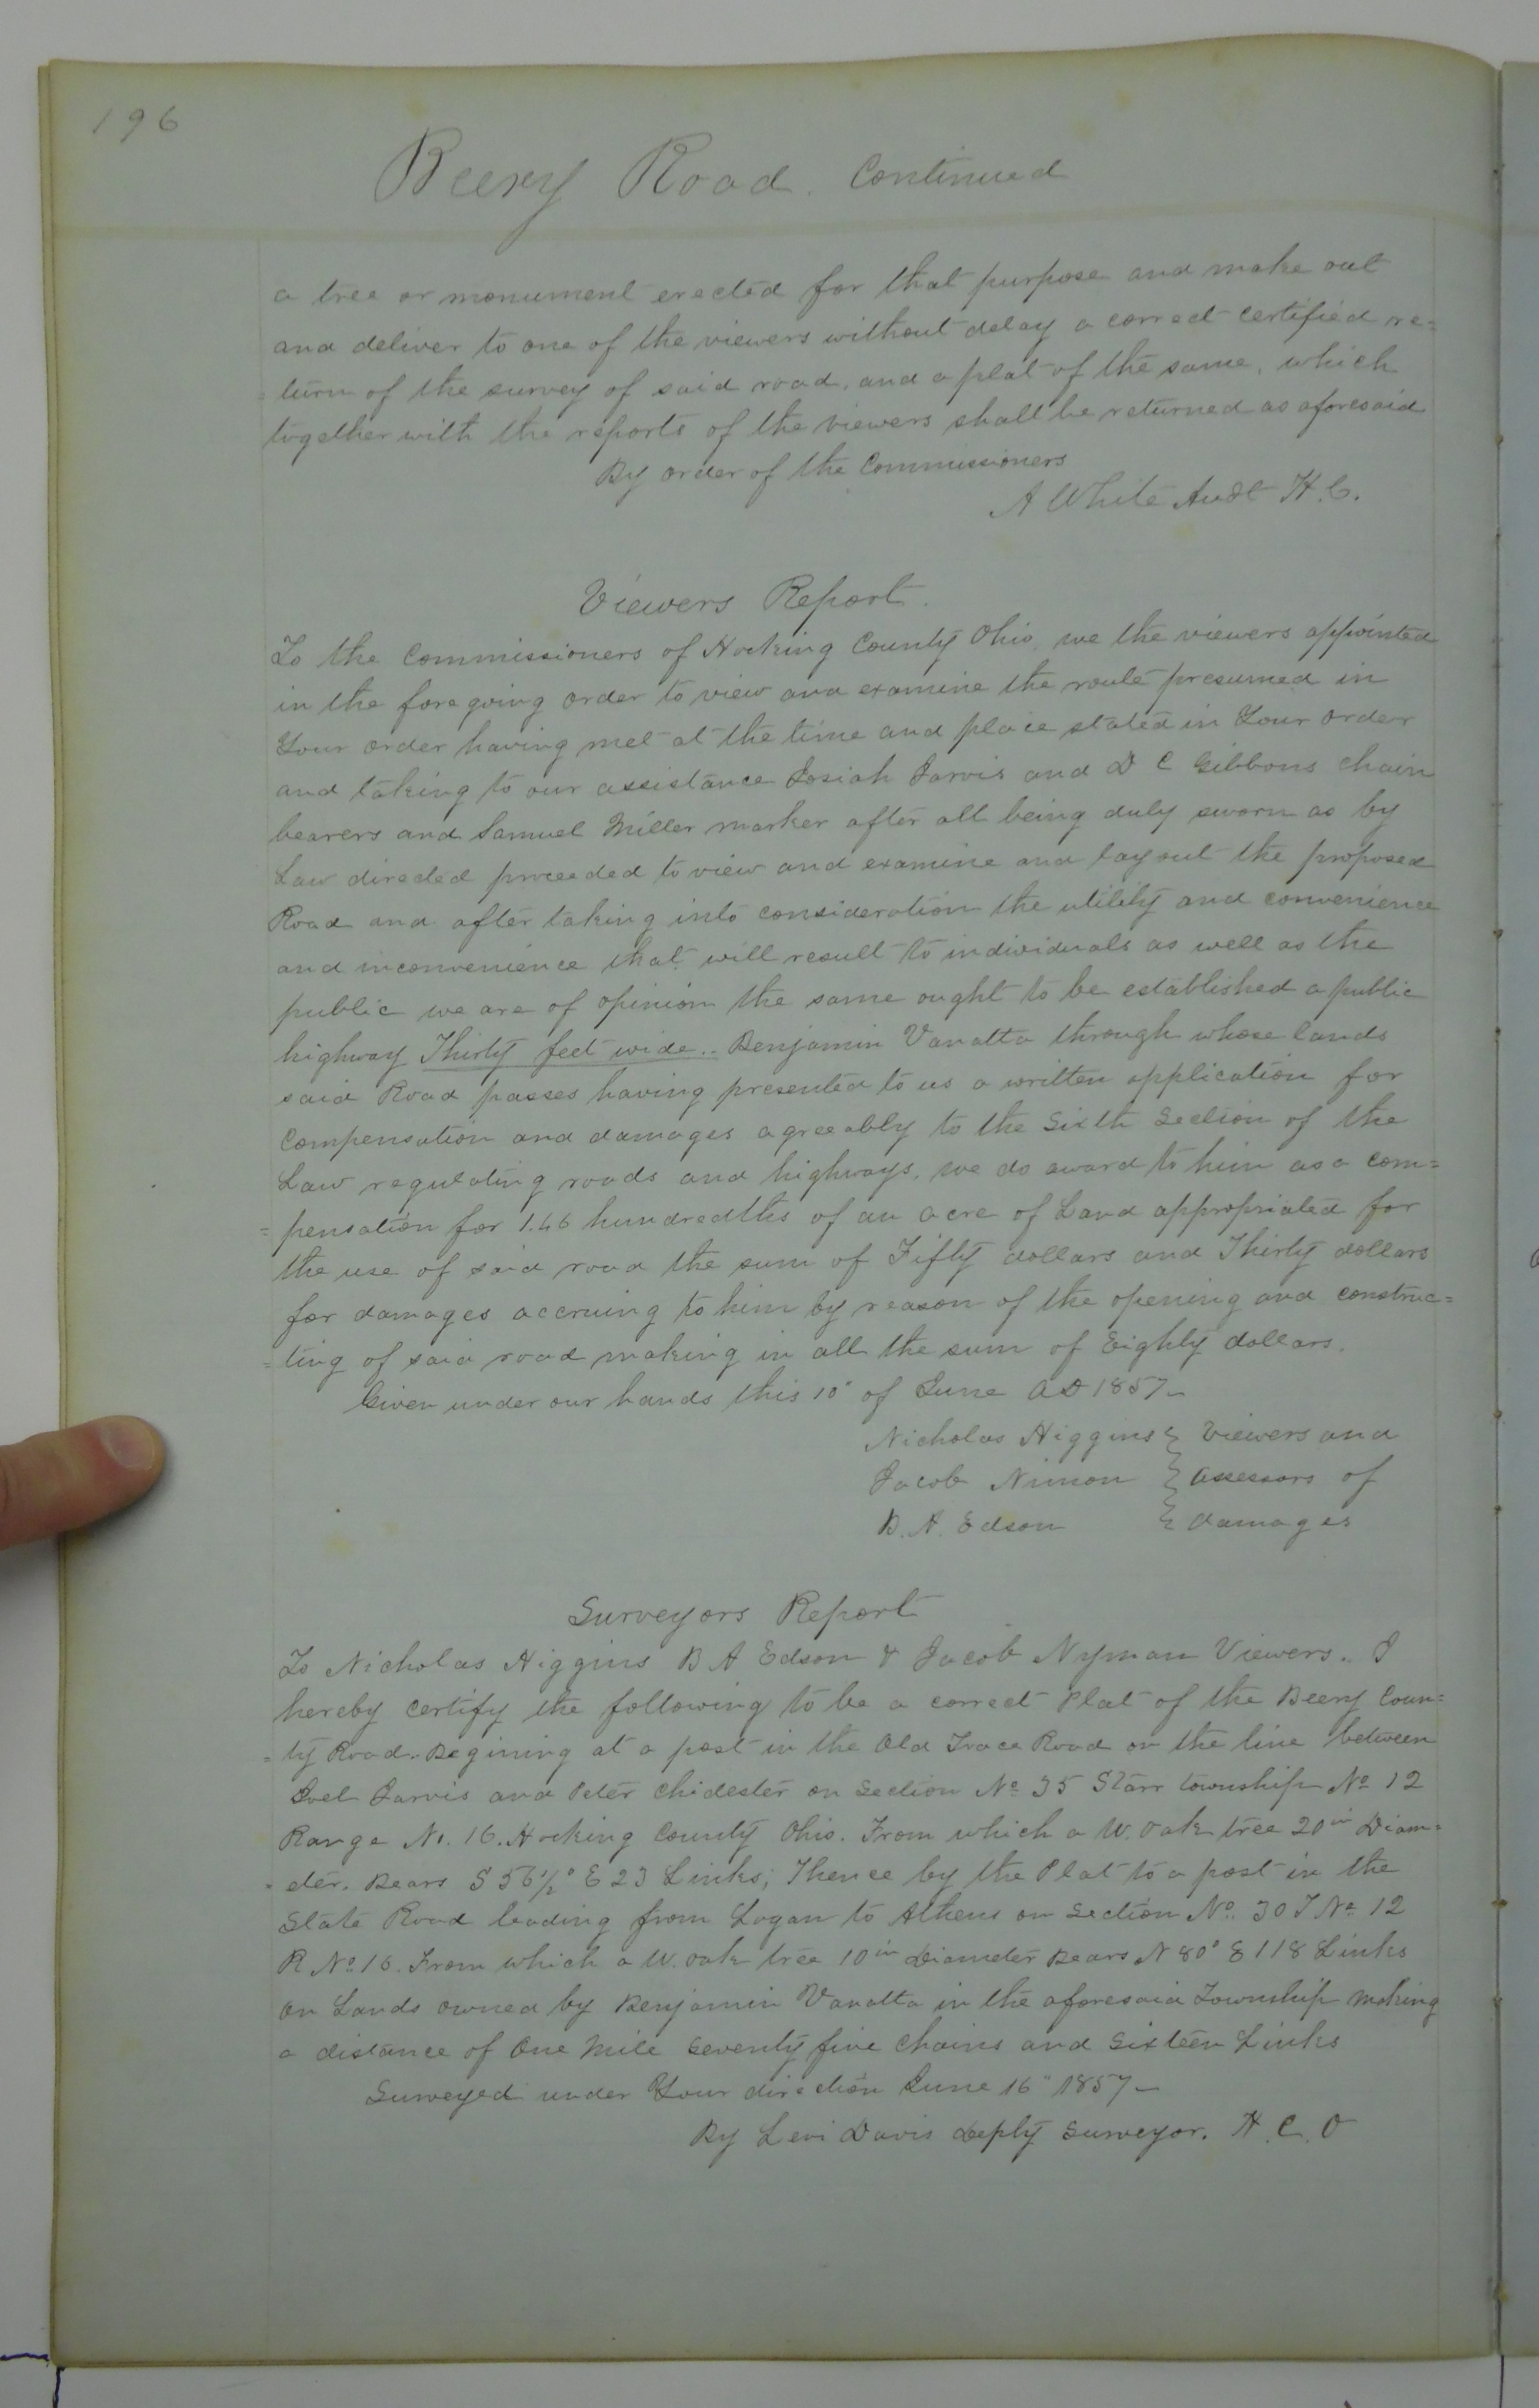 196
Beery Road. Continued
a tree or monument erected for that purpose and make out
and deliver to one of the viewers without delay a correct certified re=
=turn of the survey of said road, and a plat of the same, which
together with the reports of the viewers shall be returned as aforesaid
By order of the Commissioners
A White Audt H.C.
Viewers Report.
To the Commissioners of Hocking County Ohio, we the viewers appointed
in the foregoing order to view and examine the route presumed in
Your order having met at the time and place stated in Your order
and taking to our assistance Josiah Jarvis and D C Gibbons chain
bearers and Samuel Miller marker after all being duly sworn as by
Law directed proceeded to view and examine and lay out the proposed
Road and after taking into consideration the utility and convenience
and inconvenience that will result to individuals as well as the
public we are of opinion the same ought to be established a public
highway Thirty feet wide.. Benjamin Vanatta through whose lands
said Road passes having presented to us a written application for
Compensation and damages agreeably to the Sixth Section of the
Law regulating roads and highways, we do award to him as a com=
=pensation for 1.46 hundredths of an acre of Land appropriated for
the use of said road the sum of Fifty dollars and Thirty dollars
for damages accruing to him by reason of the opening and construc=
=ting of said road making in all the sum of Eighty dollars.
Given under our hands this 10" of June AD 1857—
Nicholas Higgins } Viewers and
Jacob Nimon } assessors of
B. A. Edson } damages
Surveyors Report
To Nicholas Higgins B A Edson & Jacob Nyman Viewers.. I
hereby certify the following to be a correct Plat of the Beery Coun=
=ty Road.. Begining at a post in the Old Trace Road on the line between
Joel Jarvis and Peter Chidester on Section No 35 Starr township No 12
Range No. 16. Hocking County Ohio. From which a W. oak tree 20in Diam=
eter. Bears S 56½° E 23 Links; Thence by the Plat to a post in the
State Road leading from Logan to Athens on Section No. 30 T No 12
R No 16. From which a W. oak tree 10in Diameter Bears N 80° E 118 Links
On Lands owned by Benjamin Vanatta in the aforesaid Township making
a distance of One Mile Seventy five Chains and Sixteen Links
Surveyed under Your direction June 16" 1857—
By Levi Davis Depty Surveyor. H. C. O